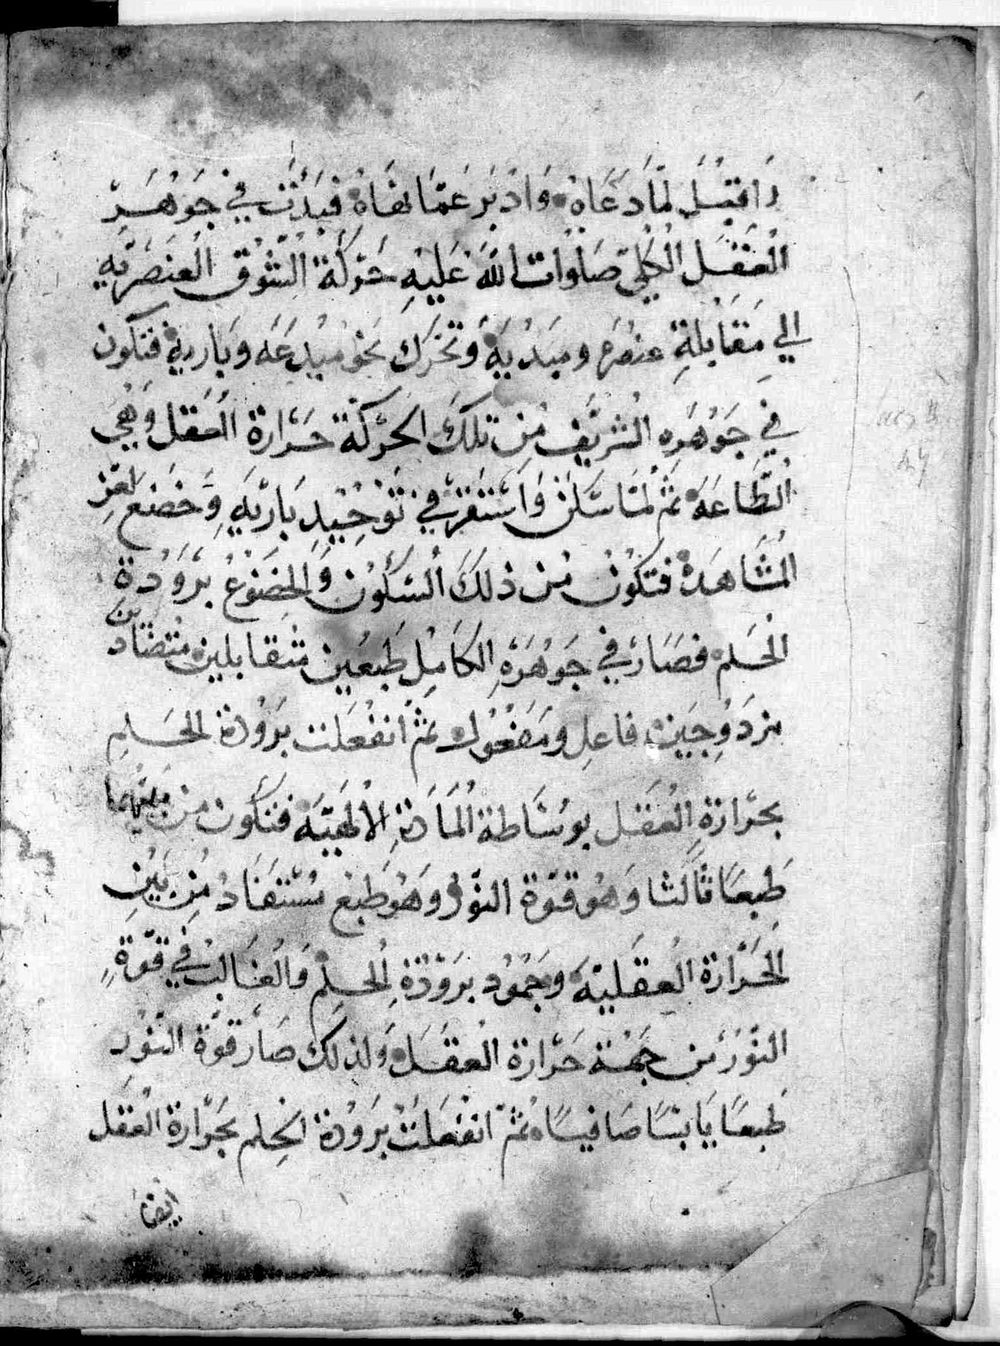 وَاقبَل لمَا دَعَاهُ وَادْبَر عَمّا نَهَاهُ فبَدَت في جَوهَر
العَقَل الكلي صَلوات الله عَليهِ حَرَكَة الشَوق العنصَريه
الي مقَابَلةِ عنصره ومبَديه وتحَرك نحو مبدعَه وبَاريه فتكون
في جَوهَره الشريَف من تلكَ الحرَكة حَرَارة العَقل وَهيَ
الطّاعَه ثم لمّا سَكن وَاسْتَقرَ في تَوحيد بَاريَه وَخضَع لعز
المشَاهدَة فتكون من ذلكَ السكون وَالخضوع برَودة
الحَلم فصَارَ في جَوهَره الكامل طَبعين متقابلين متضادين
مزدَوجَين فاعل ومَفعول ثم انفعَلت برَودة الحلم
بحرَارة العقَل بوسَاطة المَادة الالهيَه فتكون من بينهما
طَبعًا ثالثا وَهو قوّة النوَر وهوَ طَبع مستَفاد من بَين
الحَرَارة العقَليّه وجمُود برَودة الحلم وَالغَالب في قوّةِ
النوَر من جهَة حَرَارة العقَل وَلذلكَ صَار قوّة النوَر
طَبعًا يَابسًا صَافيًا ثم انفعَلت برَودة الحِلم بحَرَارة العَقل
ايضا